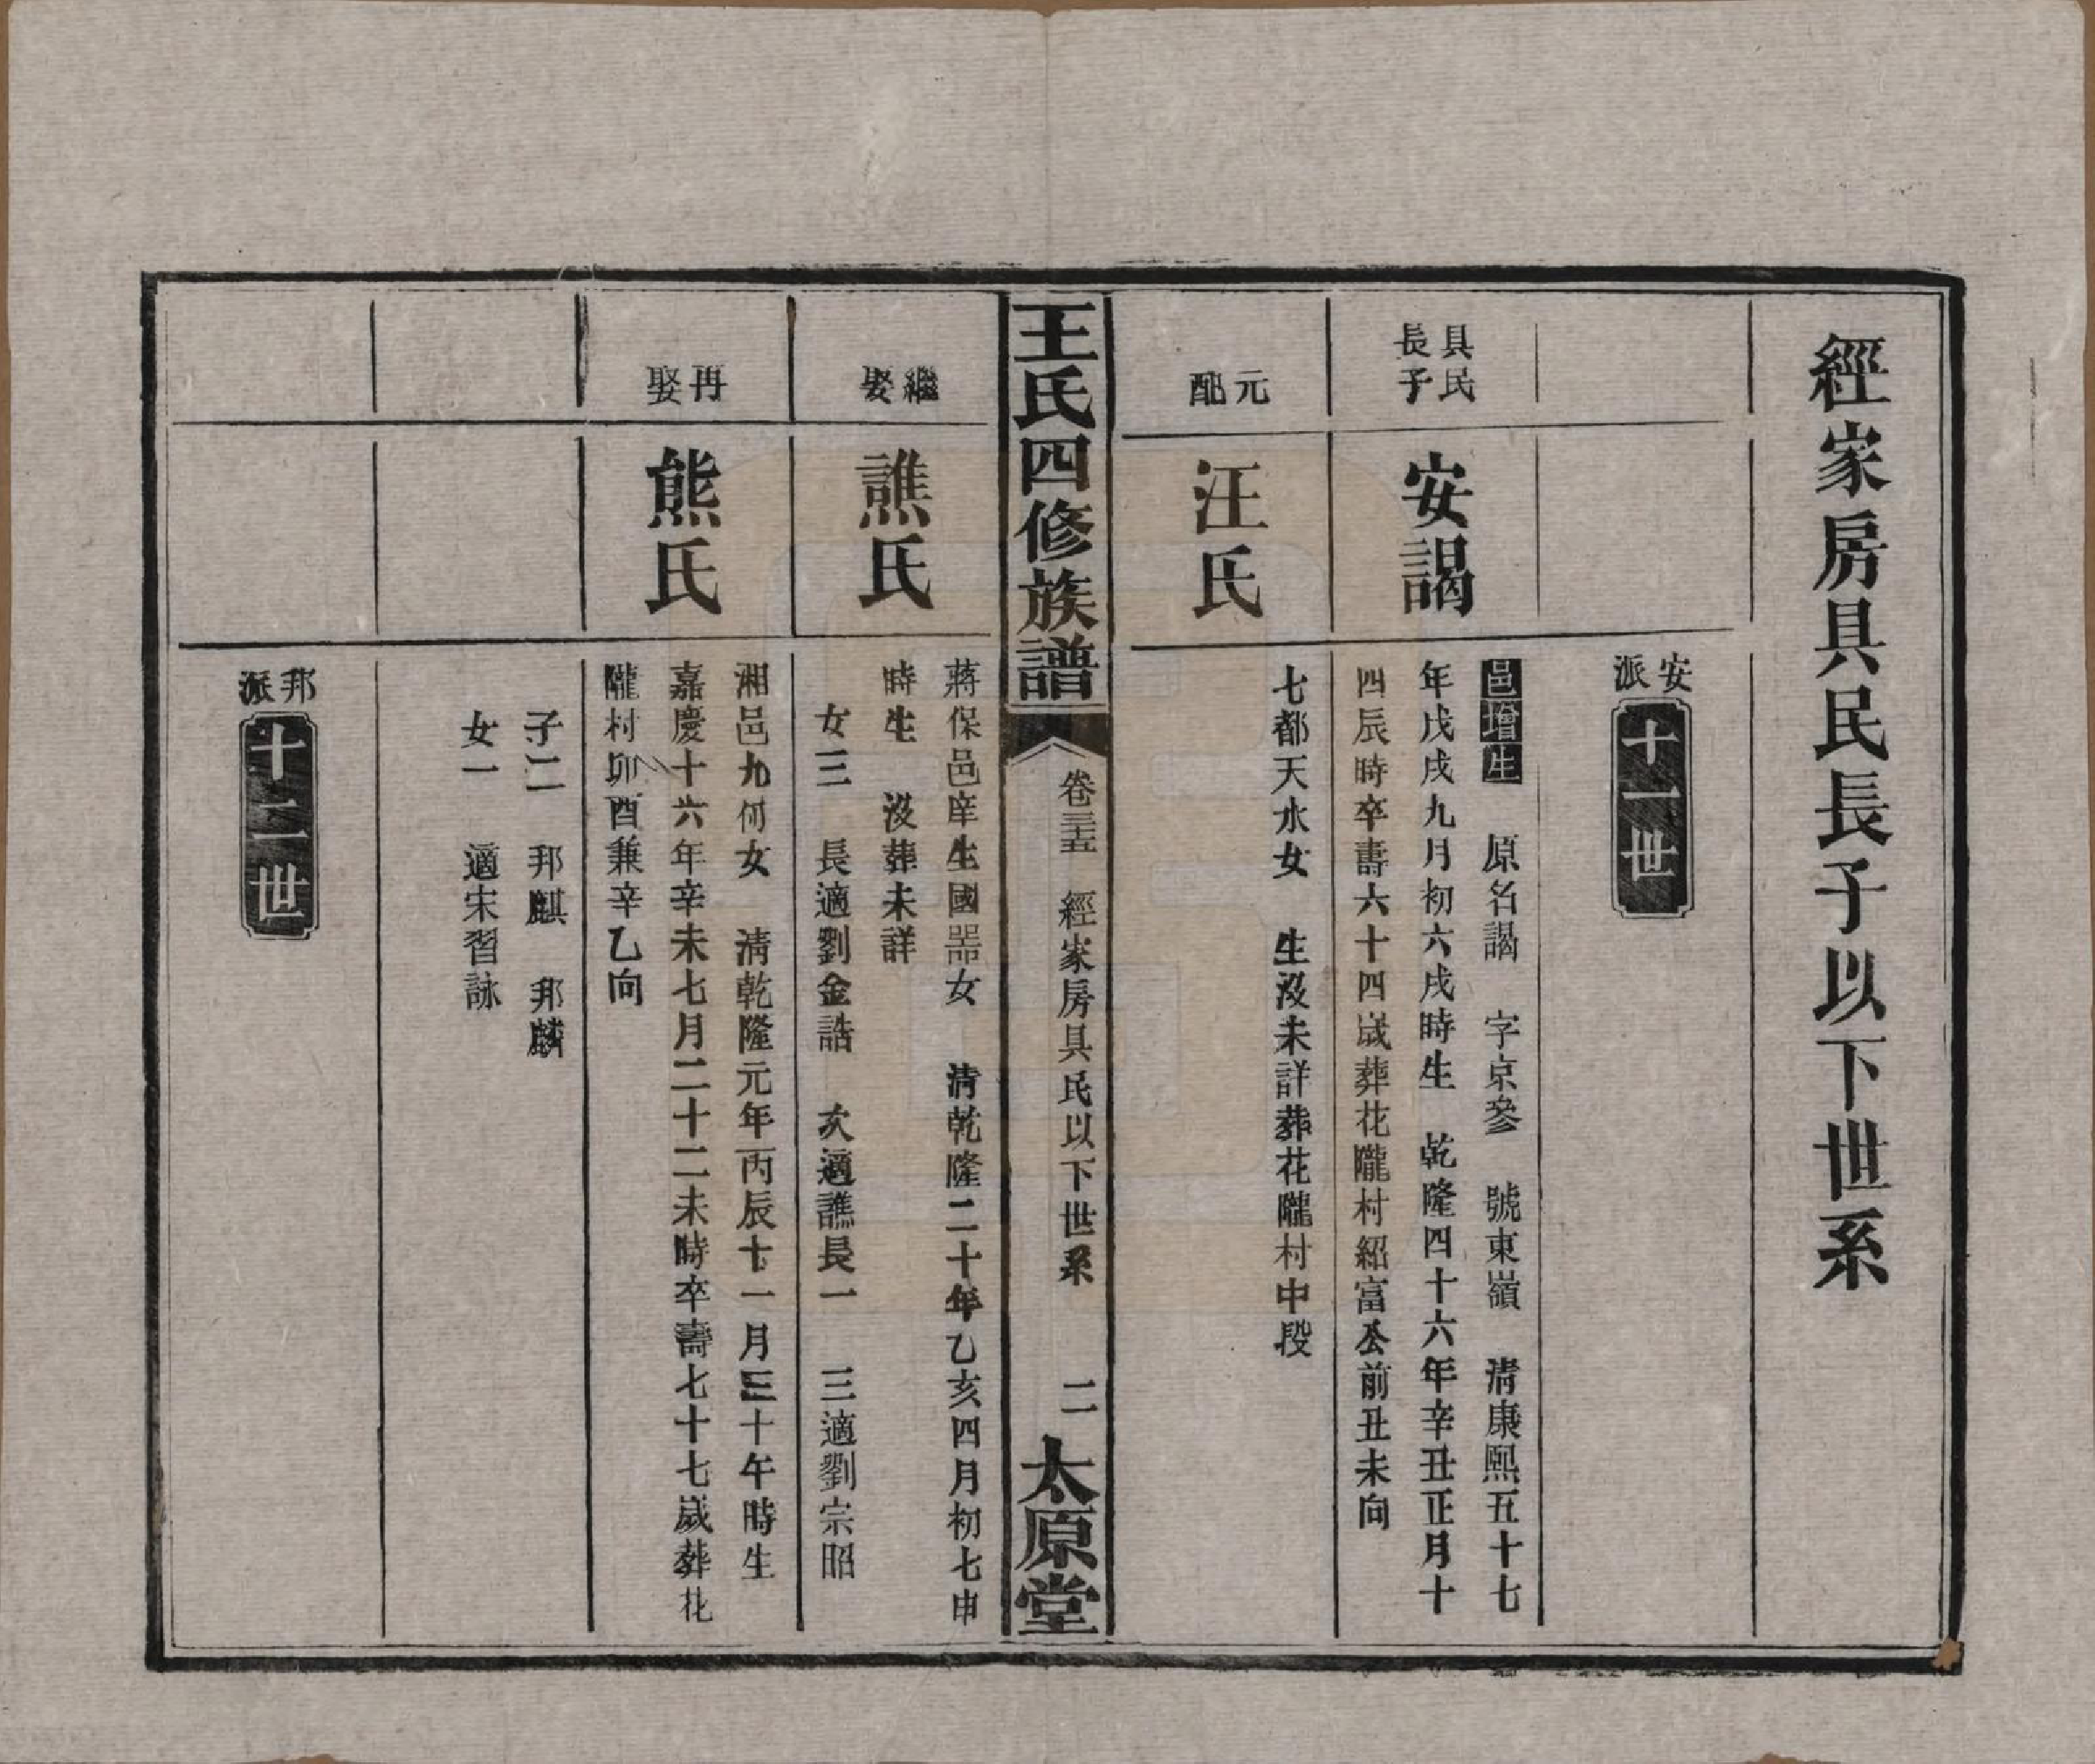 經家房具民長子以下世系
安派
十一世
具民長子
安謁
邑增生　原名謁　字京參　號東嶺　清康熙五十七
年戊戌九月初六戌時生　乾隆四十六年辛丑正月十
四辰時卒壽六十四歲葬花隴村紹富公前丑未向
元配
汪氏
七都天水女　生沒未詳葬花隴村中段
王氏四修族譜
卷三五　經家房具民以下世系　二
太原堂
繼娶
譙氏
蔣保邑庠生國噐女　清乾隆二十年乙亥四月初七申
時生　沒葬未詳
女三　長適劉金誥　次適譙長一　三適劉宗昭
再娶
熊氏
湘邑九何女　清乾隆元年丙辰十一月三十午時生
嘉慶十六年辛未七月二十二未時卒壽七十七歲葬花
隴村卯酉兼辛乙向
子二　邦麒　邦麟
女一　適宋習詠
邦派
十二世